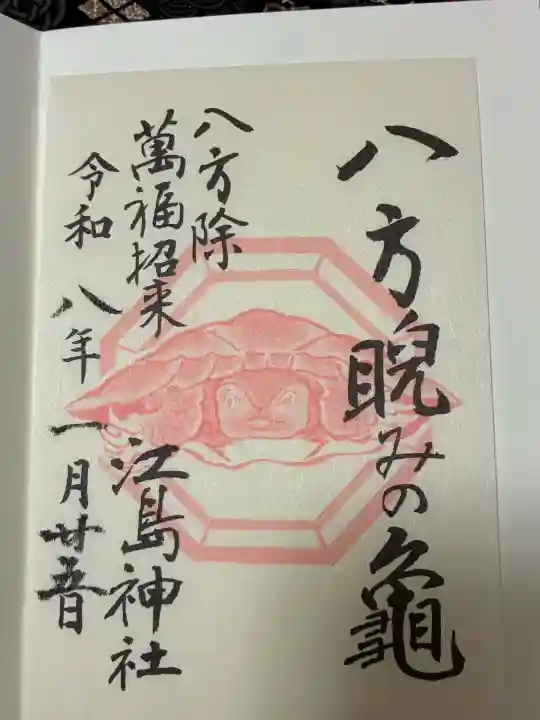 八方睨みの龜
八方除
萬福招来
江島神社
令和八年一月廿五日